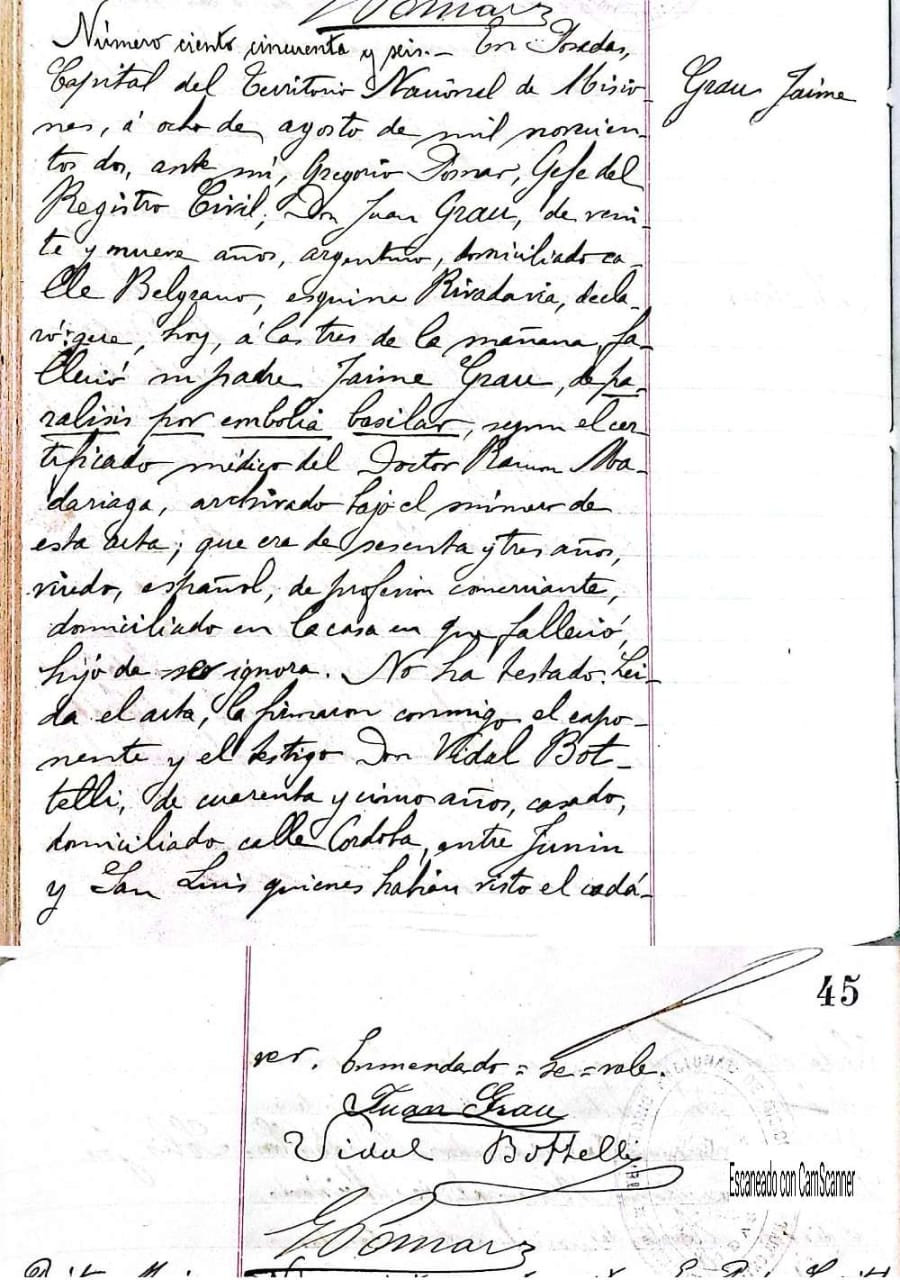 G Pomar
Número ciento cincuenta y seis.- En Posadas,
Capital del Territorio Nacional de Misio-
nes, á ocho de agosto de mil novecien-
tos dos, ante mí, Gregorio Pomar, Gefe del
Registro Civil, Don Juan Grau, de vein-
te y nueve años, argentino, domiciliado ca-
lle Belgrano, esquina Rivadavia, decla-
ró: que, hoy, á las tres de la mañana, fa-
lleció su padre Jaime Grau, de pa-
ralisis por embolia basilar, segun el cer-
tificado médico del Doctor Ramon Ma-
dariaga, archivado bajo el número de
esta acta; que era de sesenta y tres años,
viudo, español, de profesion comerciante,
domiciliado en la casa en que falleció,
hijo de se ignora. No ha testado. Lei-
da el acta, la firmaron conmigo el expo-
nente y el testigo Don Vidal Bot-
telli, de cuarenta y cinco años, casado,
domiciliado calle Cordoba, entre Junin
y San Luis quienes habian visto el cadá-
Grau Jaime
45
ver. Enmendado = se = vale.
Juan Grau
Vidal Bottelli
G Pomar
Escaneado con CamScanner